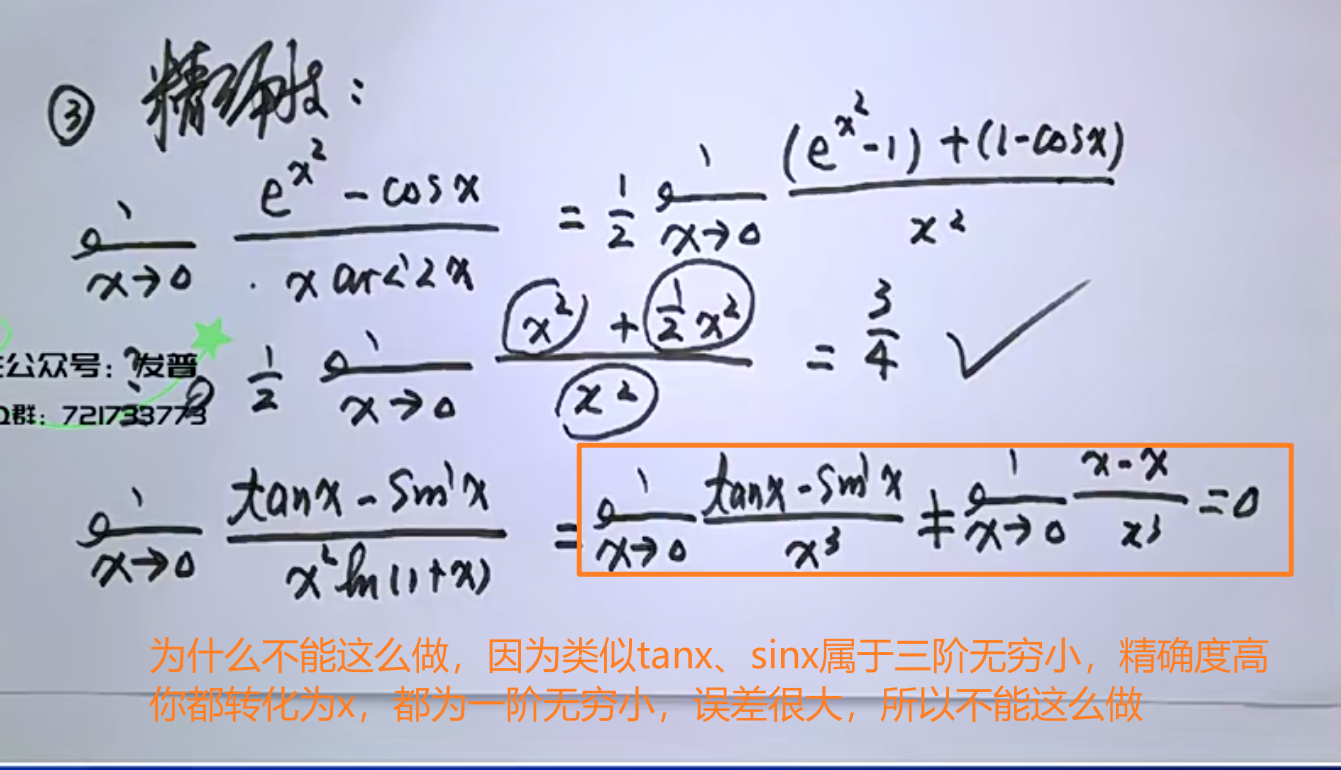 ③ 精确度:
lim x→0 (e^(x²) - cosx)/(x arc 2x) = 1/2 lim x→0 ((e^(x²)-1)+(1-cosx))/x²
公众号:发普
= 1/2 lim x→0 (x² + 1/2 x²)/x² = 3/4 ✓
Q群:721733773
lim x→0 (tanx - sinx)/(x² ln(1+x)) = lim x→0 (tanx - sinx)/x³ ≠ lim x→0 (x-x)/x³ = 0
为什么不能这么做,因为类似tanx、sinx属于三阶无穷小,精确度高
你都转化为x,都为一阶无穷小,误差很大,所以不能这么做